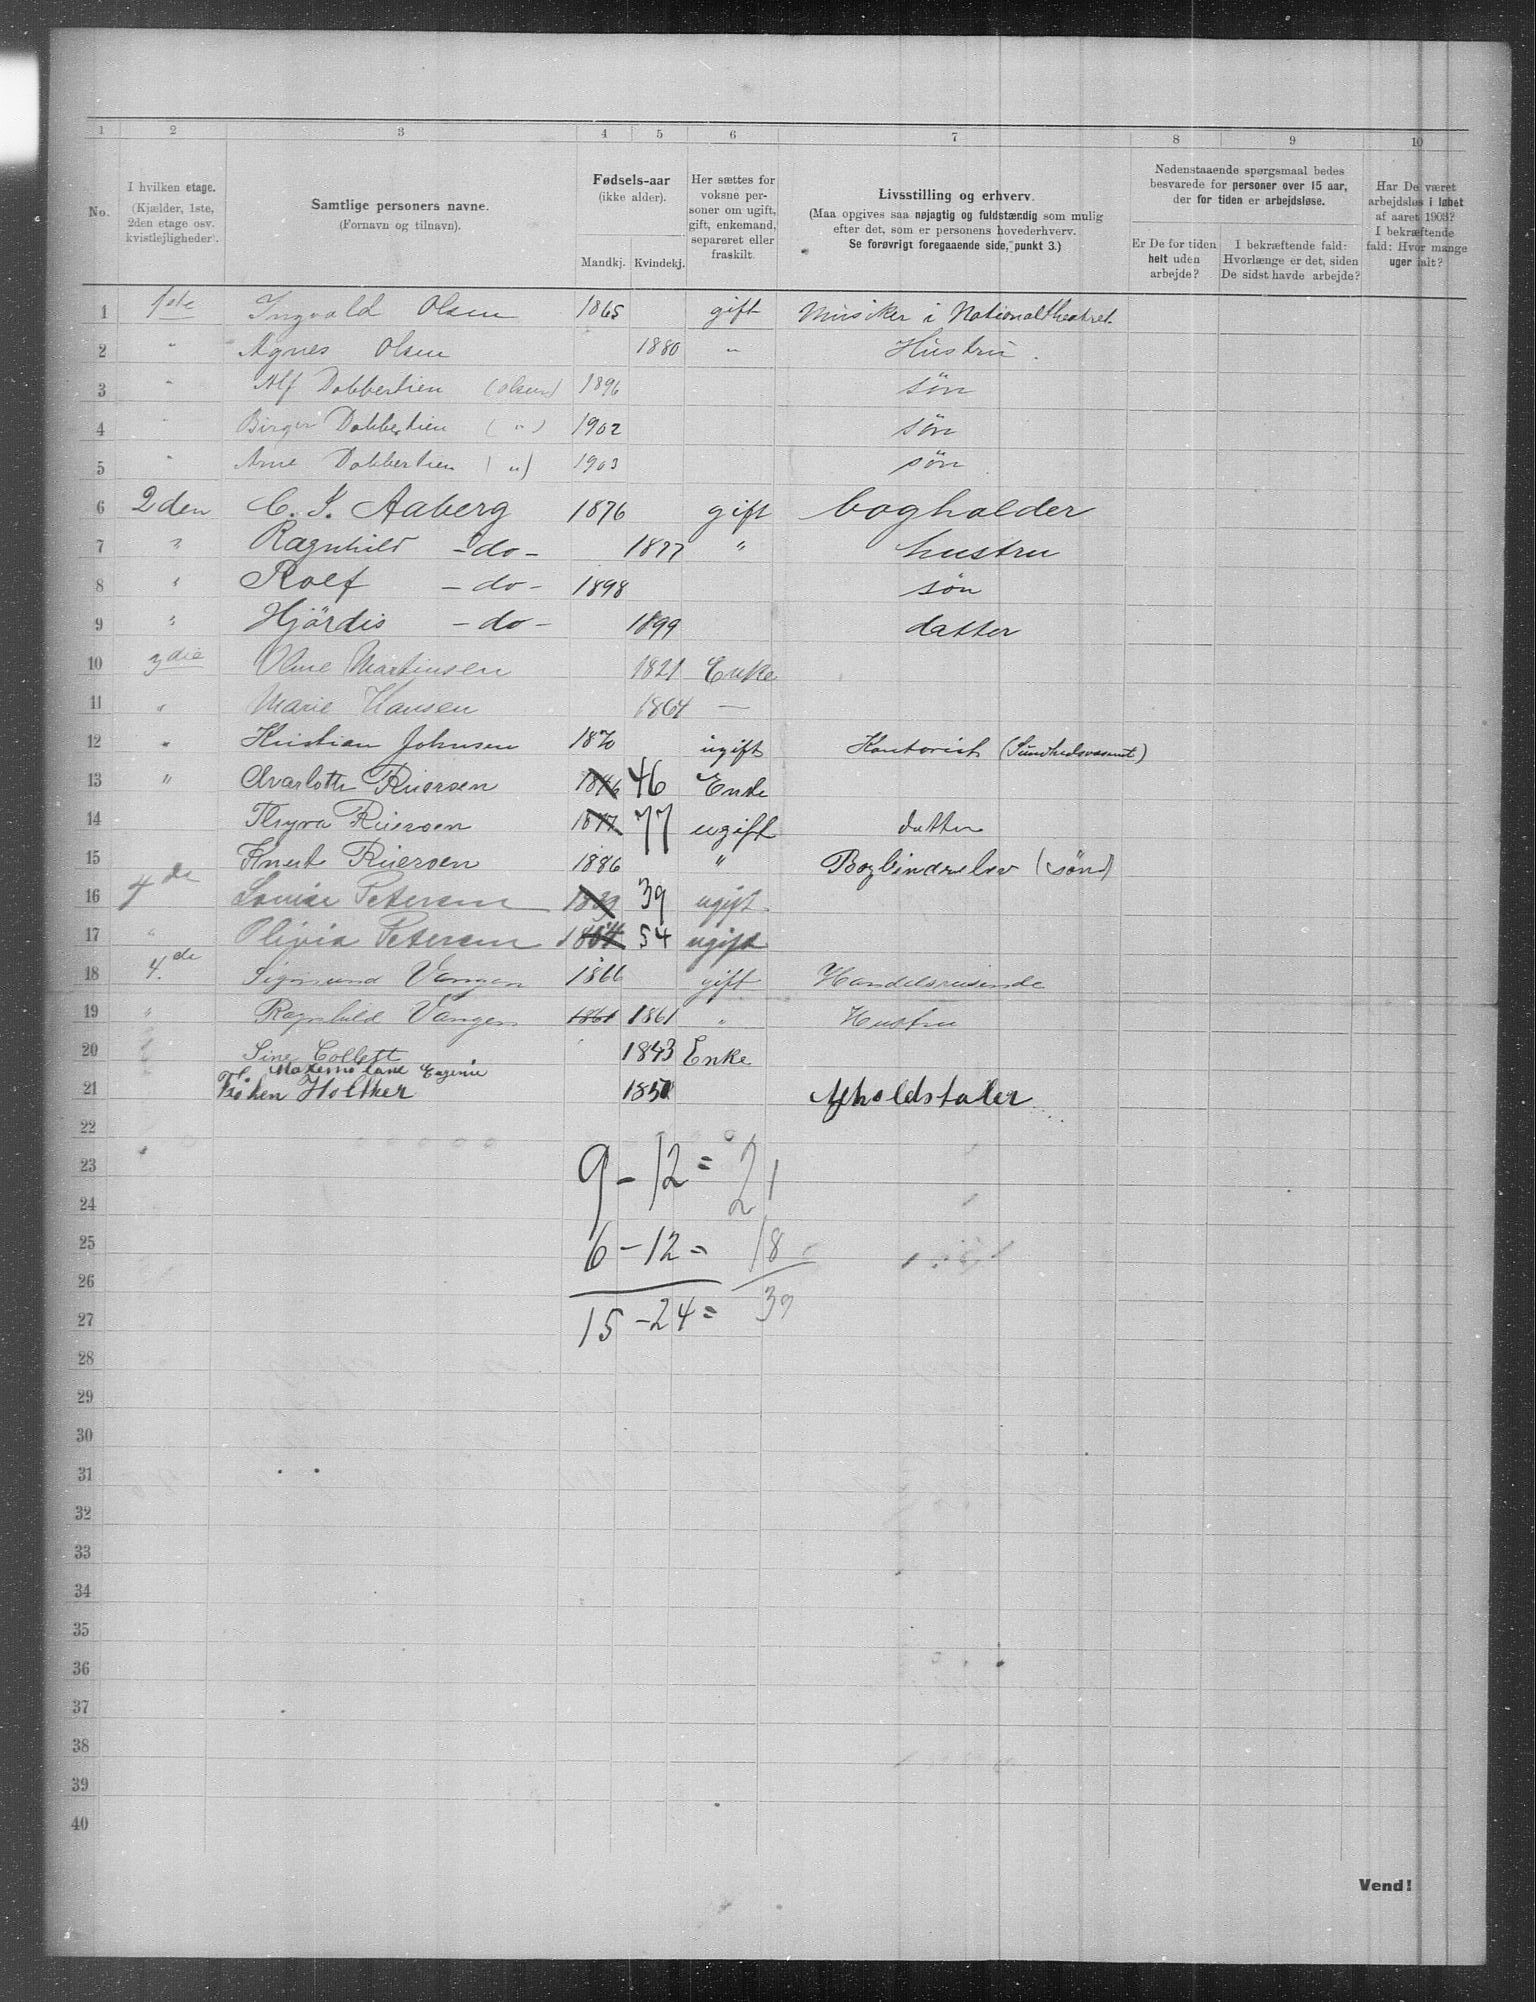 1 2 3 4 5 6 7 8 9 10
No. I hvilken etage. (Kjælder, 1ste, 2den etage osv. kvistlejligheder). Samtlige personers navne. (Fornavn og tilnavn). Fødsels-aar (ikke alder). Mandkj. Kvindekj. Her sættes for voksne personer om ugift, gift, enkemand, separeret eller fraskilt. Livsstilling og erhverv. (Maa opgives saa nøjagtig og fuldstændig som mulig efter det, som er personens hovederhverv. Se forøvrigt foregaaende side, punkt 3.) Nedenstaaende spørgsmaal bedes besvarede for personer over 15 aar, der for tiden er arbejdsløse. Er De for tiden helt uden arbejde? I bekræftende fald: Hvorlænge er det, siden De sidst havde arbejde? Har De været arbejdsløs i løbet af aaret 1903? I bekræftende fald: Hvor mange uger ialt?
1 1ste Ingvald Olsen 1865 gift Musiker i Nationaltheatret
2 " Agnes Olsen 1880 " Hustru.
3 " Alf Dobbertien (Olsen) 1896 søn
4 " Birger Dobbertien ( " ) 1902 søn
5 " Arne Dobbertien ( " ) 1903 søn
6 2den C. I. Aaberg 1876 gift bogholder
7 " Ragnhild -do- 1877 " hustru
8 " Rolf -do- 1898 søn
9 " Hjördis -do- 1899 datter
10 3die Oline Martinsen 1821 Enke
11 " Marie Hansen 1864 —
12 " Kristian Johnsen 1870 ugift Kontorist (Sundhedsvæsenet)
13 " Charlotte Riiersen 1846 46 Enke
14 Thyra Riiersen 1877 77 ugift datter
15 Knut Riiersen 1886 " Bogbinderelev (søn)
16 4de Louise Petersen 1839 39 ugift
17 " Olivia Petersen 1854 54 ugift
18 4.de Sigmund Vangen 1866 gift Handelsreisende
19 " Ragnhild Vangen 1861 1861 " Hustru
20 " Sine Collett 1843 Enke
Eugenie
21 Frøken Holtker 1850 Afholdstaler
22
23 9 - 12 = 21
24
25 6 - 12 = 18
26
27 15 - 24 = 39
28
29
30
31
32
33
34
35
36
37
38
39
40
Vend!